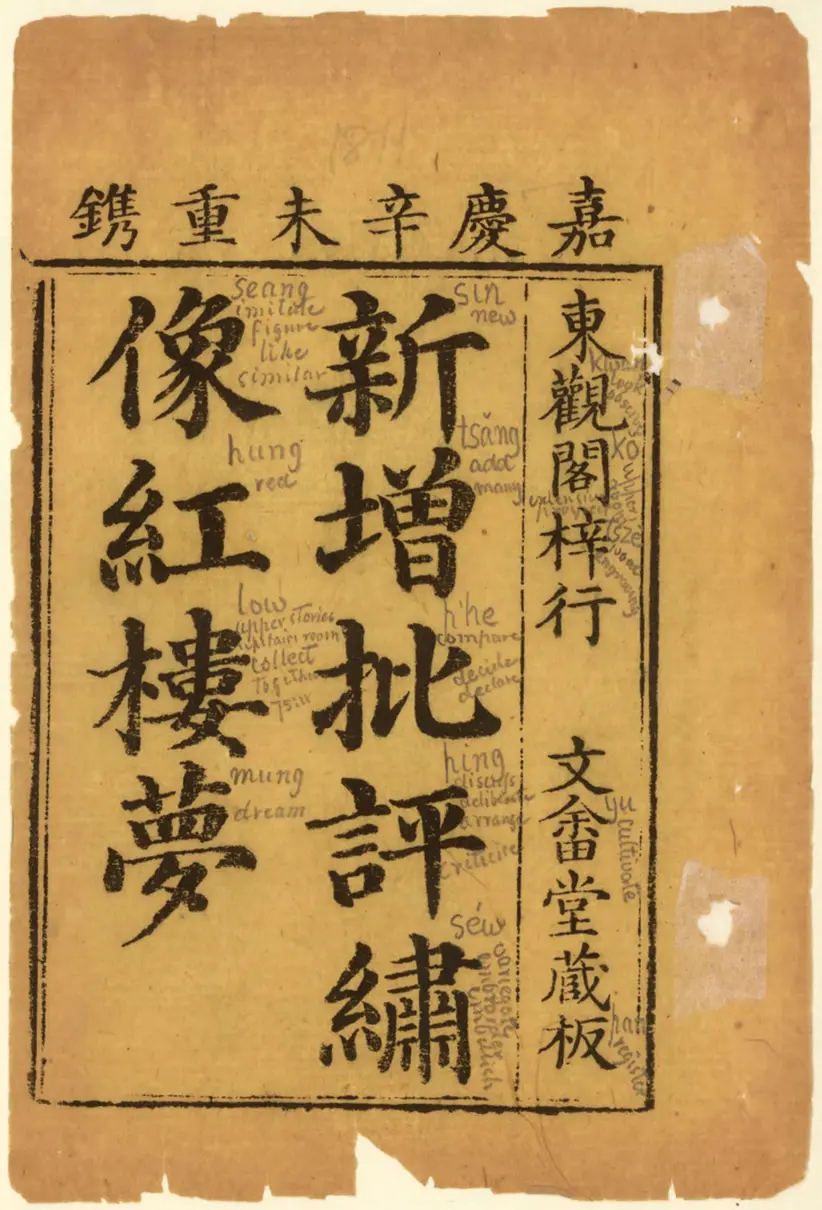 1811
嘉慶辛未重鐫
東觀閣梓行 文畬堂藏板
新增批評繡
像紅樓夢
look
KO
yu
cultivate
pan
register
sin
new
tsăng
add
many
p'he
compare
decide
declare
ping
discuss
deliberate
arrange
criticise
séw
variegate
embroider
embellish
seang
imitate
figure
like
similar
hung
red
low
upper stories
upstairs room
collect
together
mung
dream